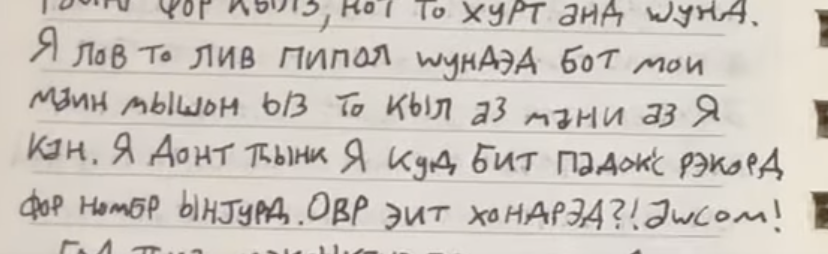 фор кылз, нот то хурт анд wунд.
Я лов то лив пипол wундэд бот мои
мэин мышон ыз то кыл аз мэни аз Я
кэн. Я донт ҍынк Я куд бит пэдок'с рэкорд
фор номбр ынјурд. Овр эит хондрэд?! Эwсом!